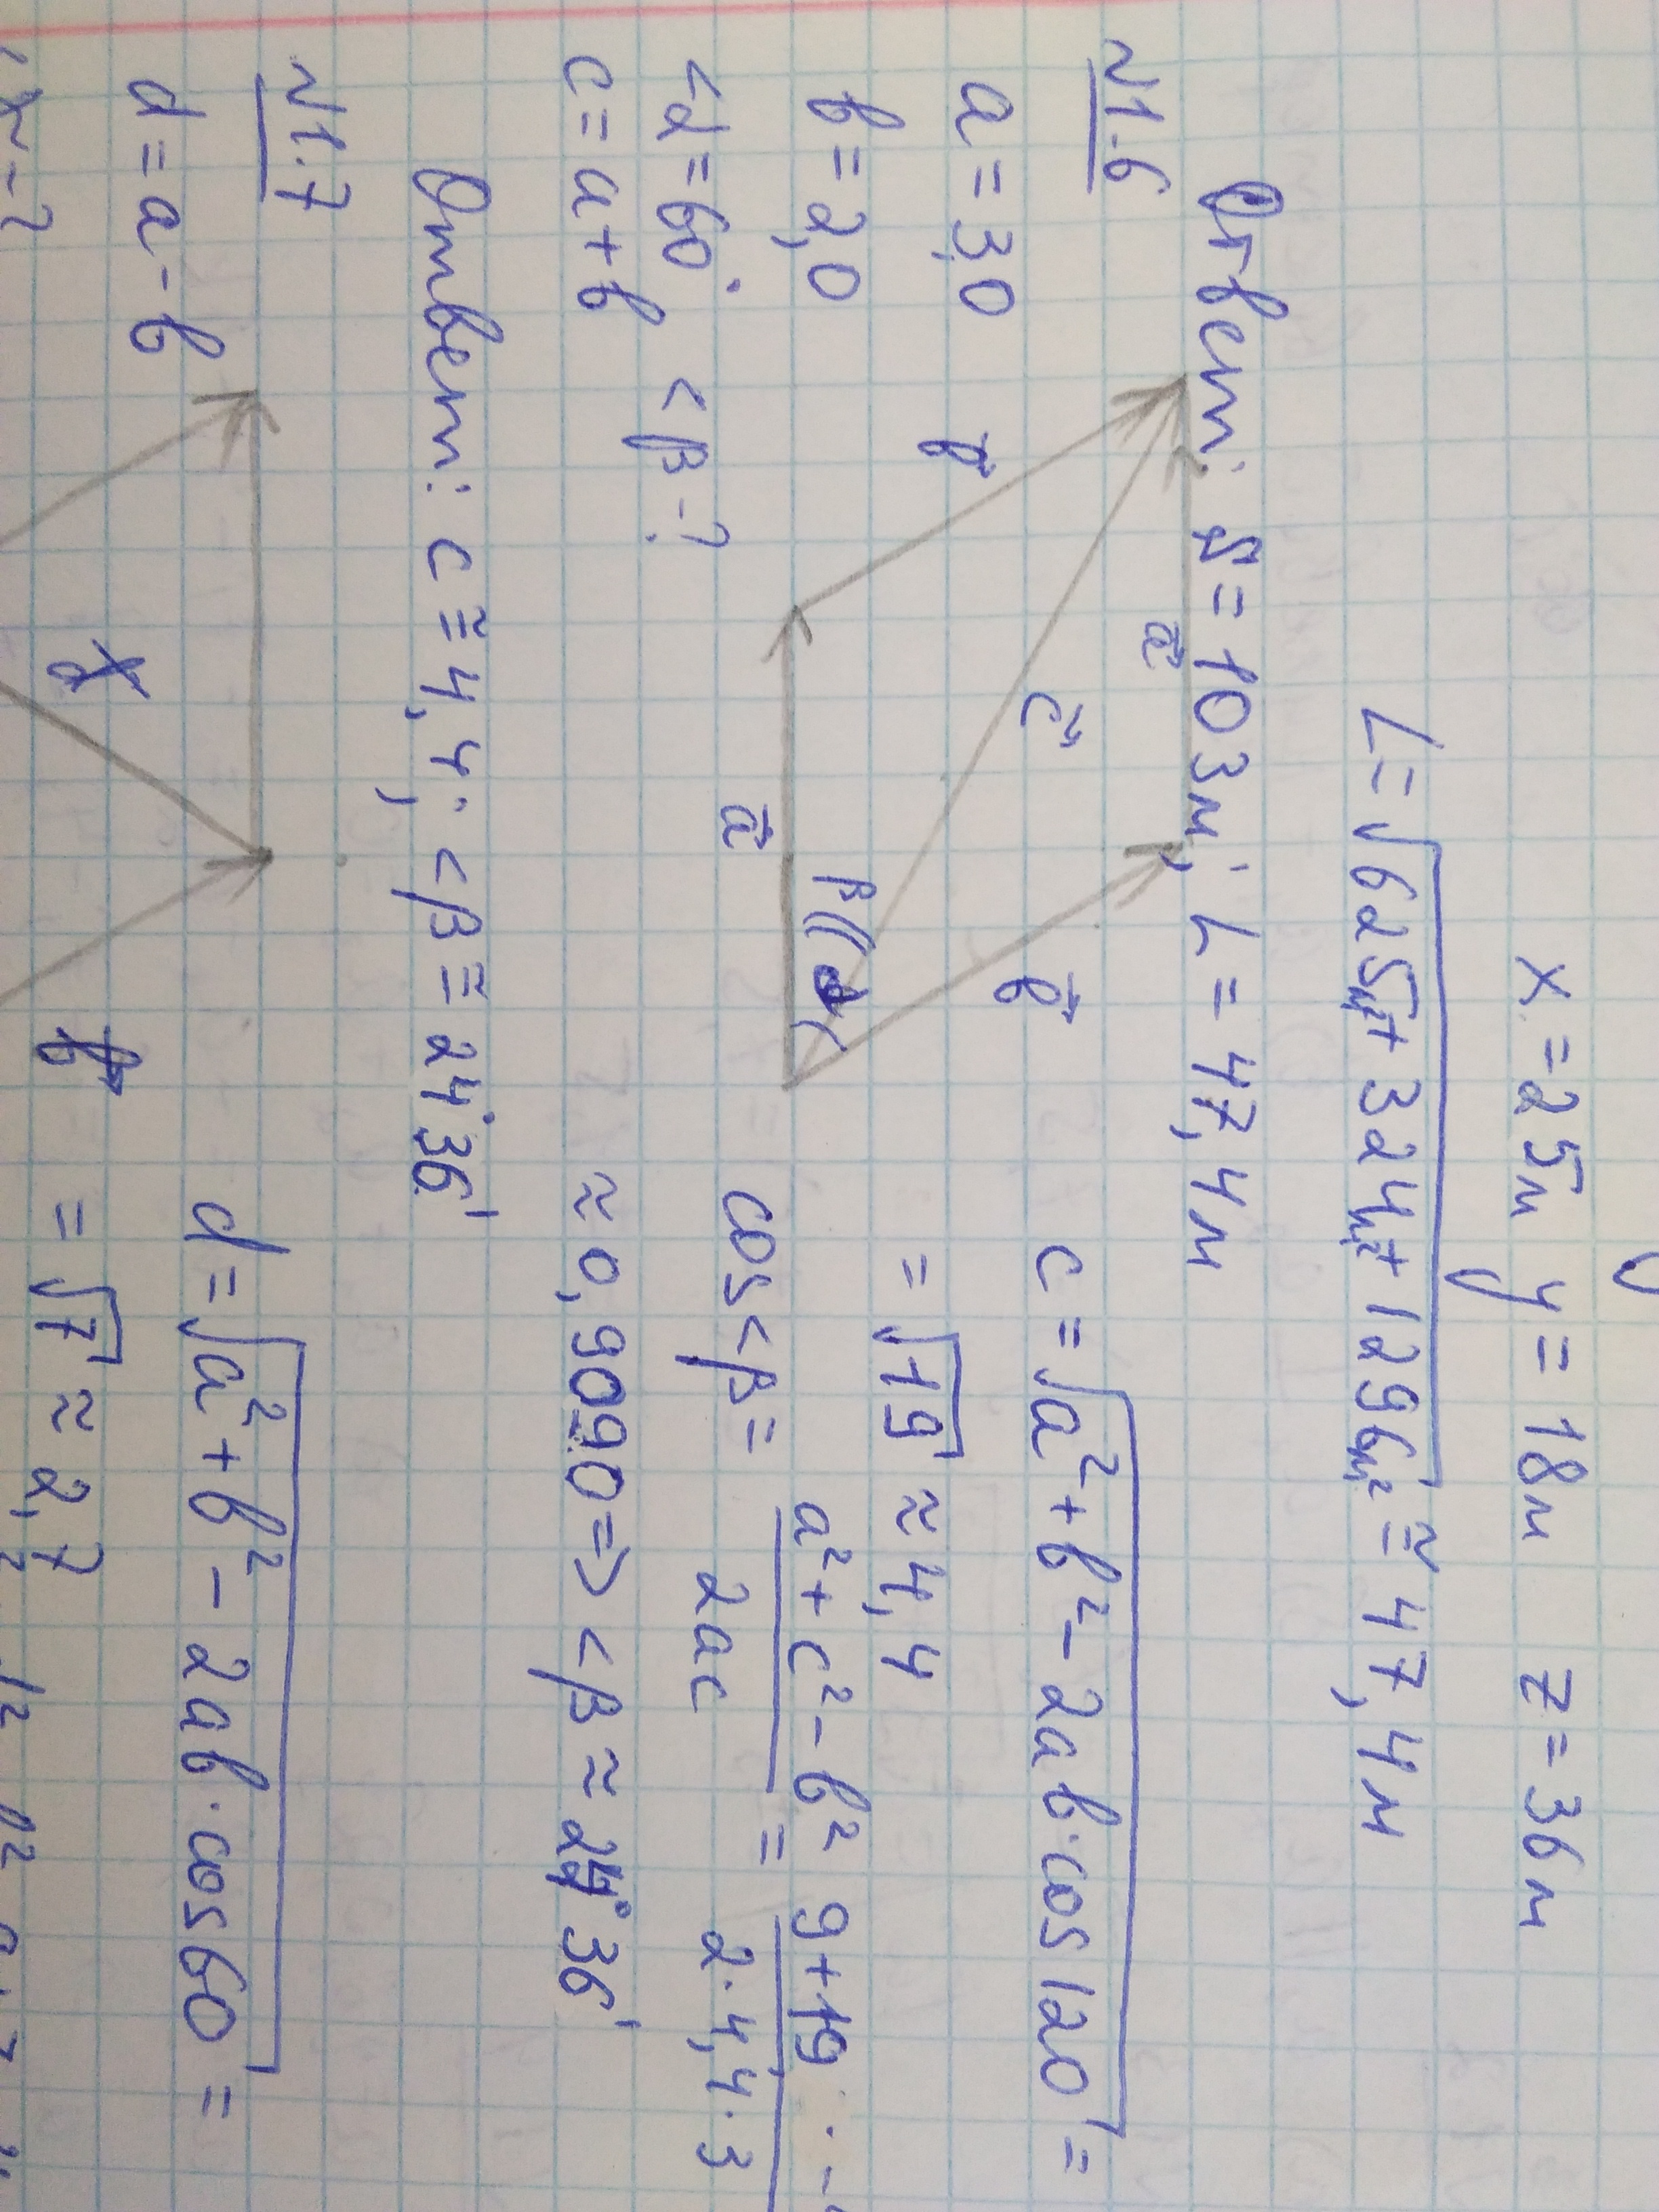 x = 25м y = 18м z = 36м
L = √625м² + 324м² + 1296м² ≅ 47,4м
Ответ: S = 103м; L = 47,4м
№1.6
a = 3,0
b = 2,0
<α = 60°
c = a + b <β - ?
a⃗
b⃗
c⃗
b⃗
a⃗
β
α
c = √a² + b² - 2ab · cos120 =
= √19 ≈ 4,4
cos<β = a² + c² - b² / 2ac = 9 + 19 / 2 · 4,4 · 3
≈ 0,9090 => <β ≈ 24°36'
Ответ: c ≅ 4,4; <β ≅ 24°36'
№1.7
d = a - b
d = √a² + b² - 2ab · cos60 =
= √7 ≈ 2,7